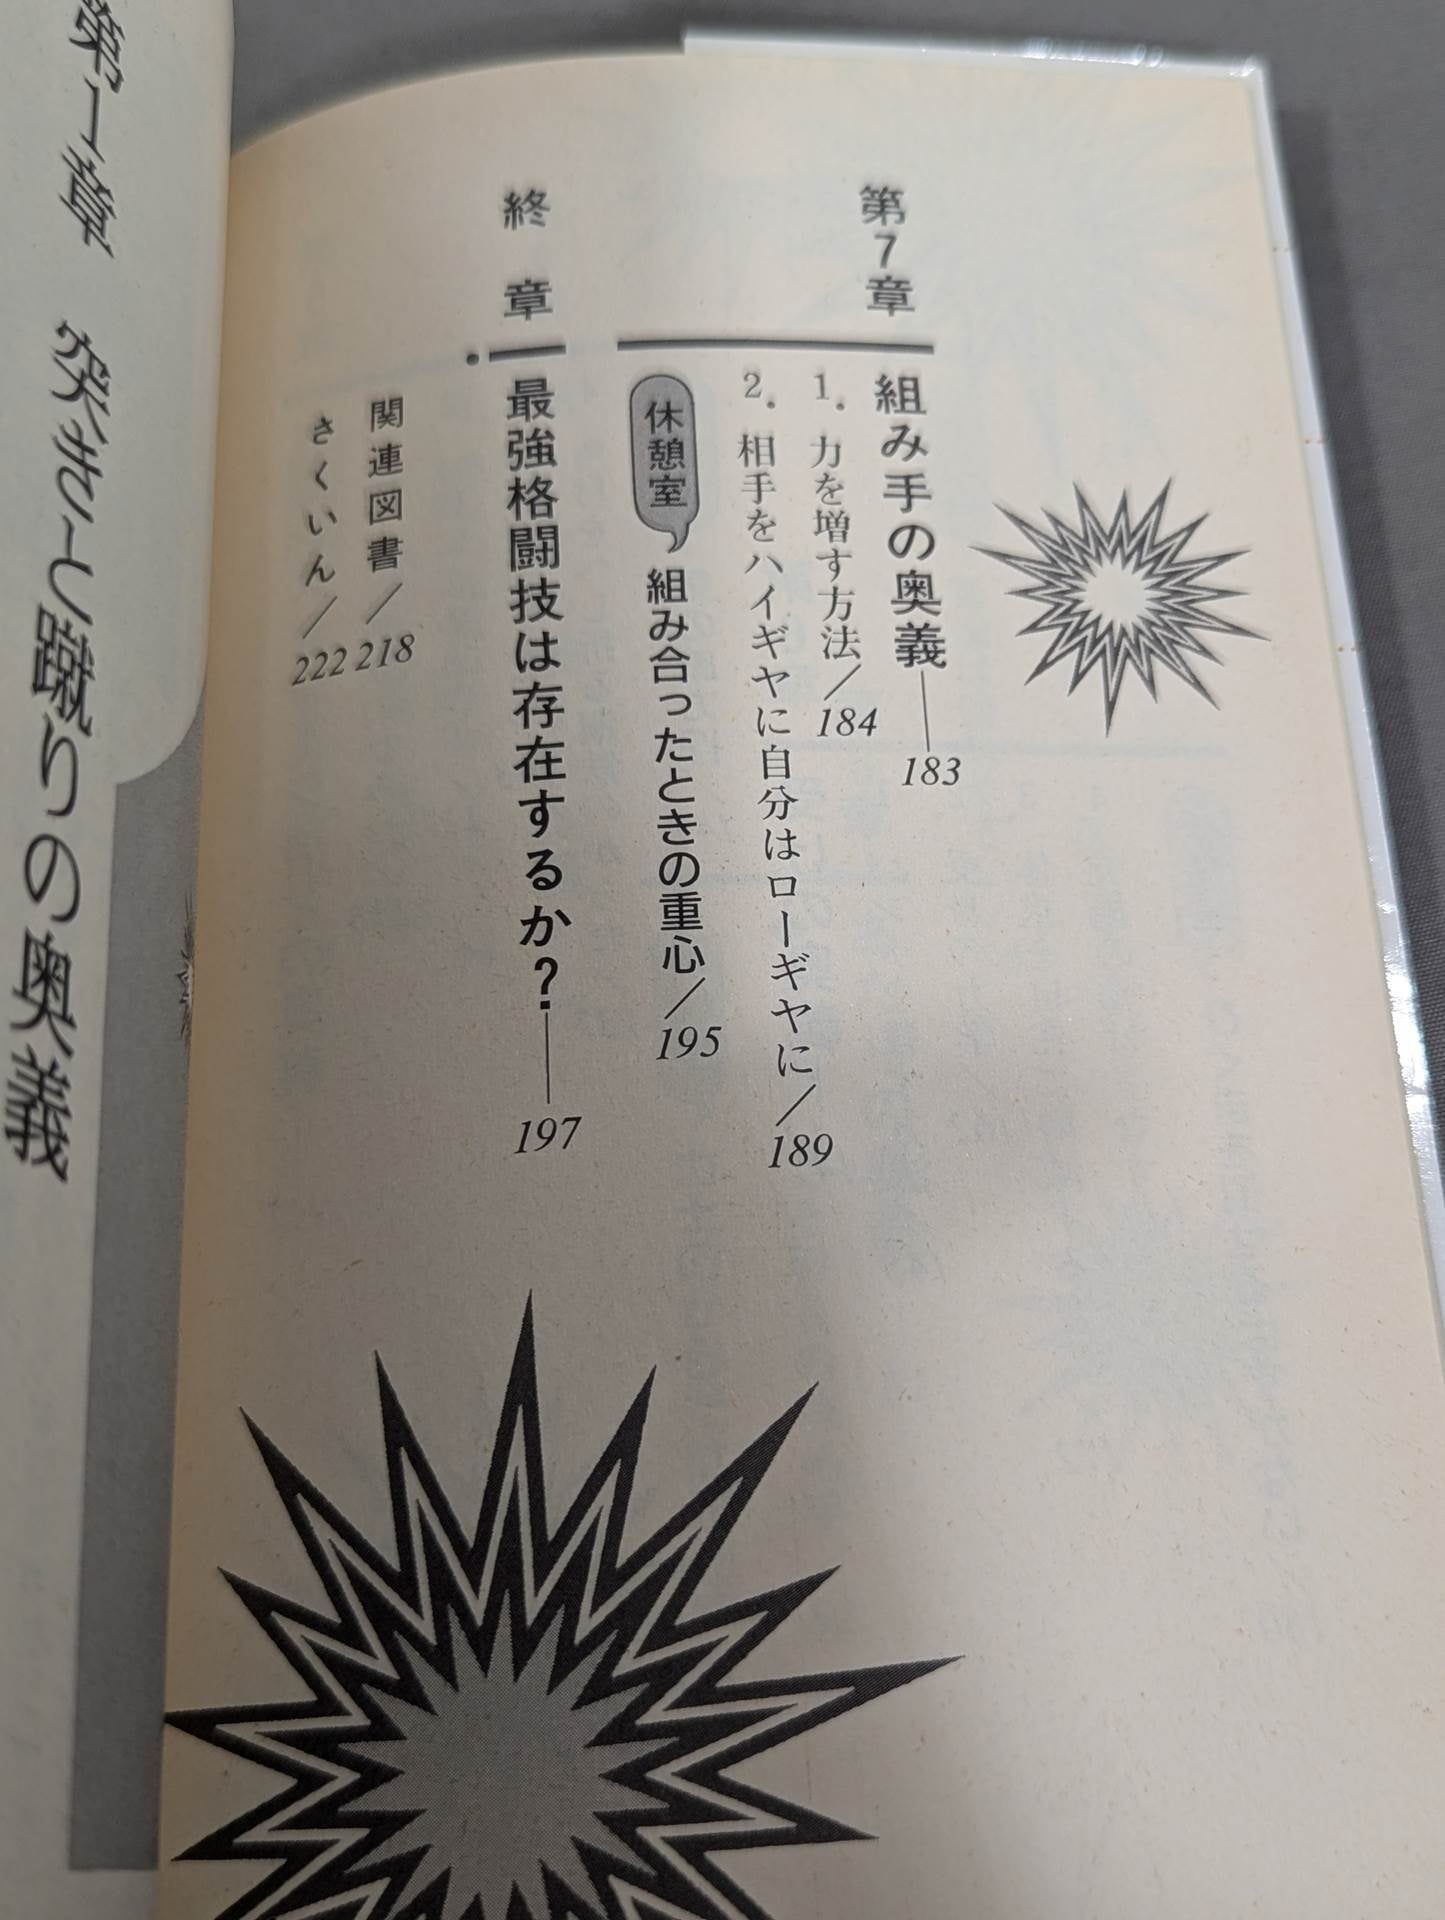 第7章 組み手の奥義 183
1. 力を増す方法／184
2. 相手をハイギヤに自分はローギヤに／189
休憩室 組み合ったときの重心／195
終章 最強格闘技は存在するか? 197
関連図書／218
さくいん／222
第1章 突きと蹴りの奥義